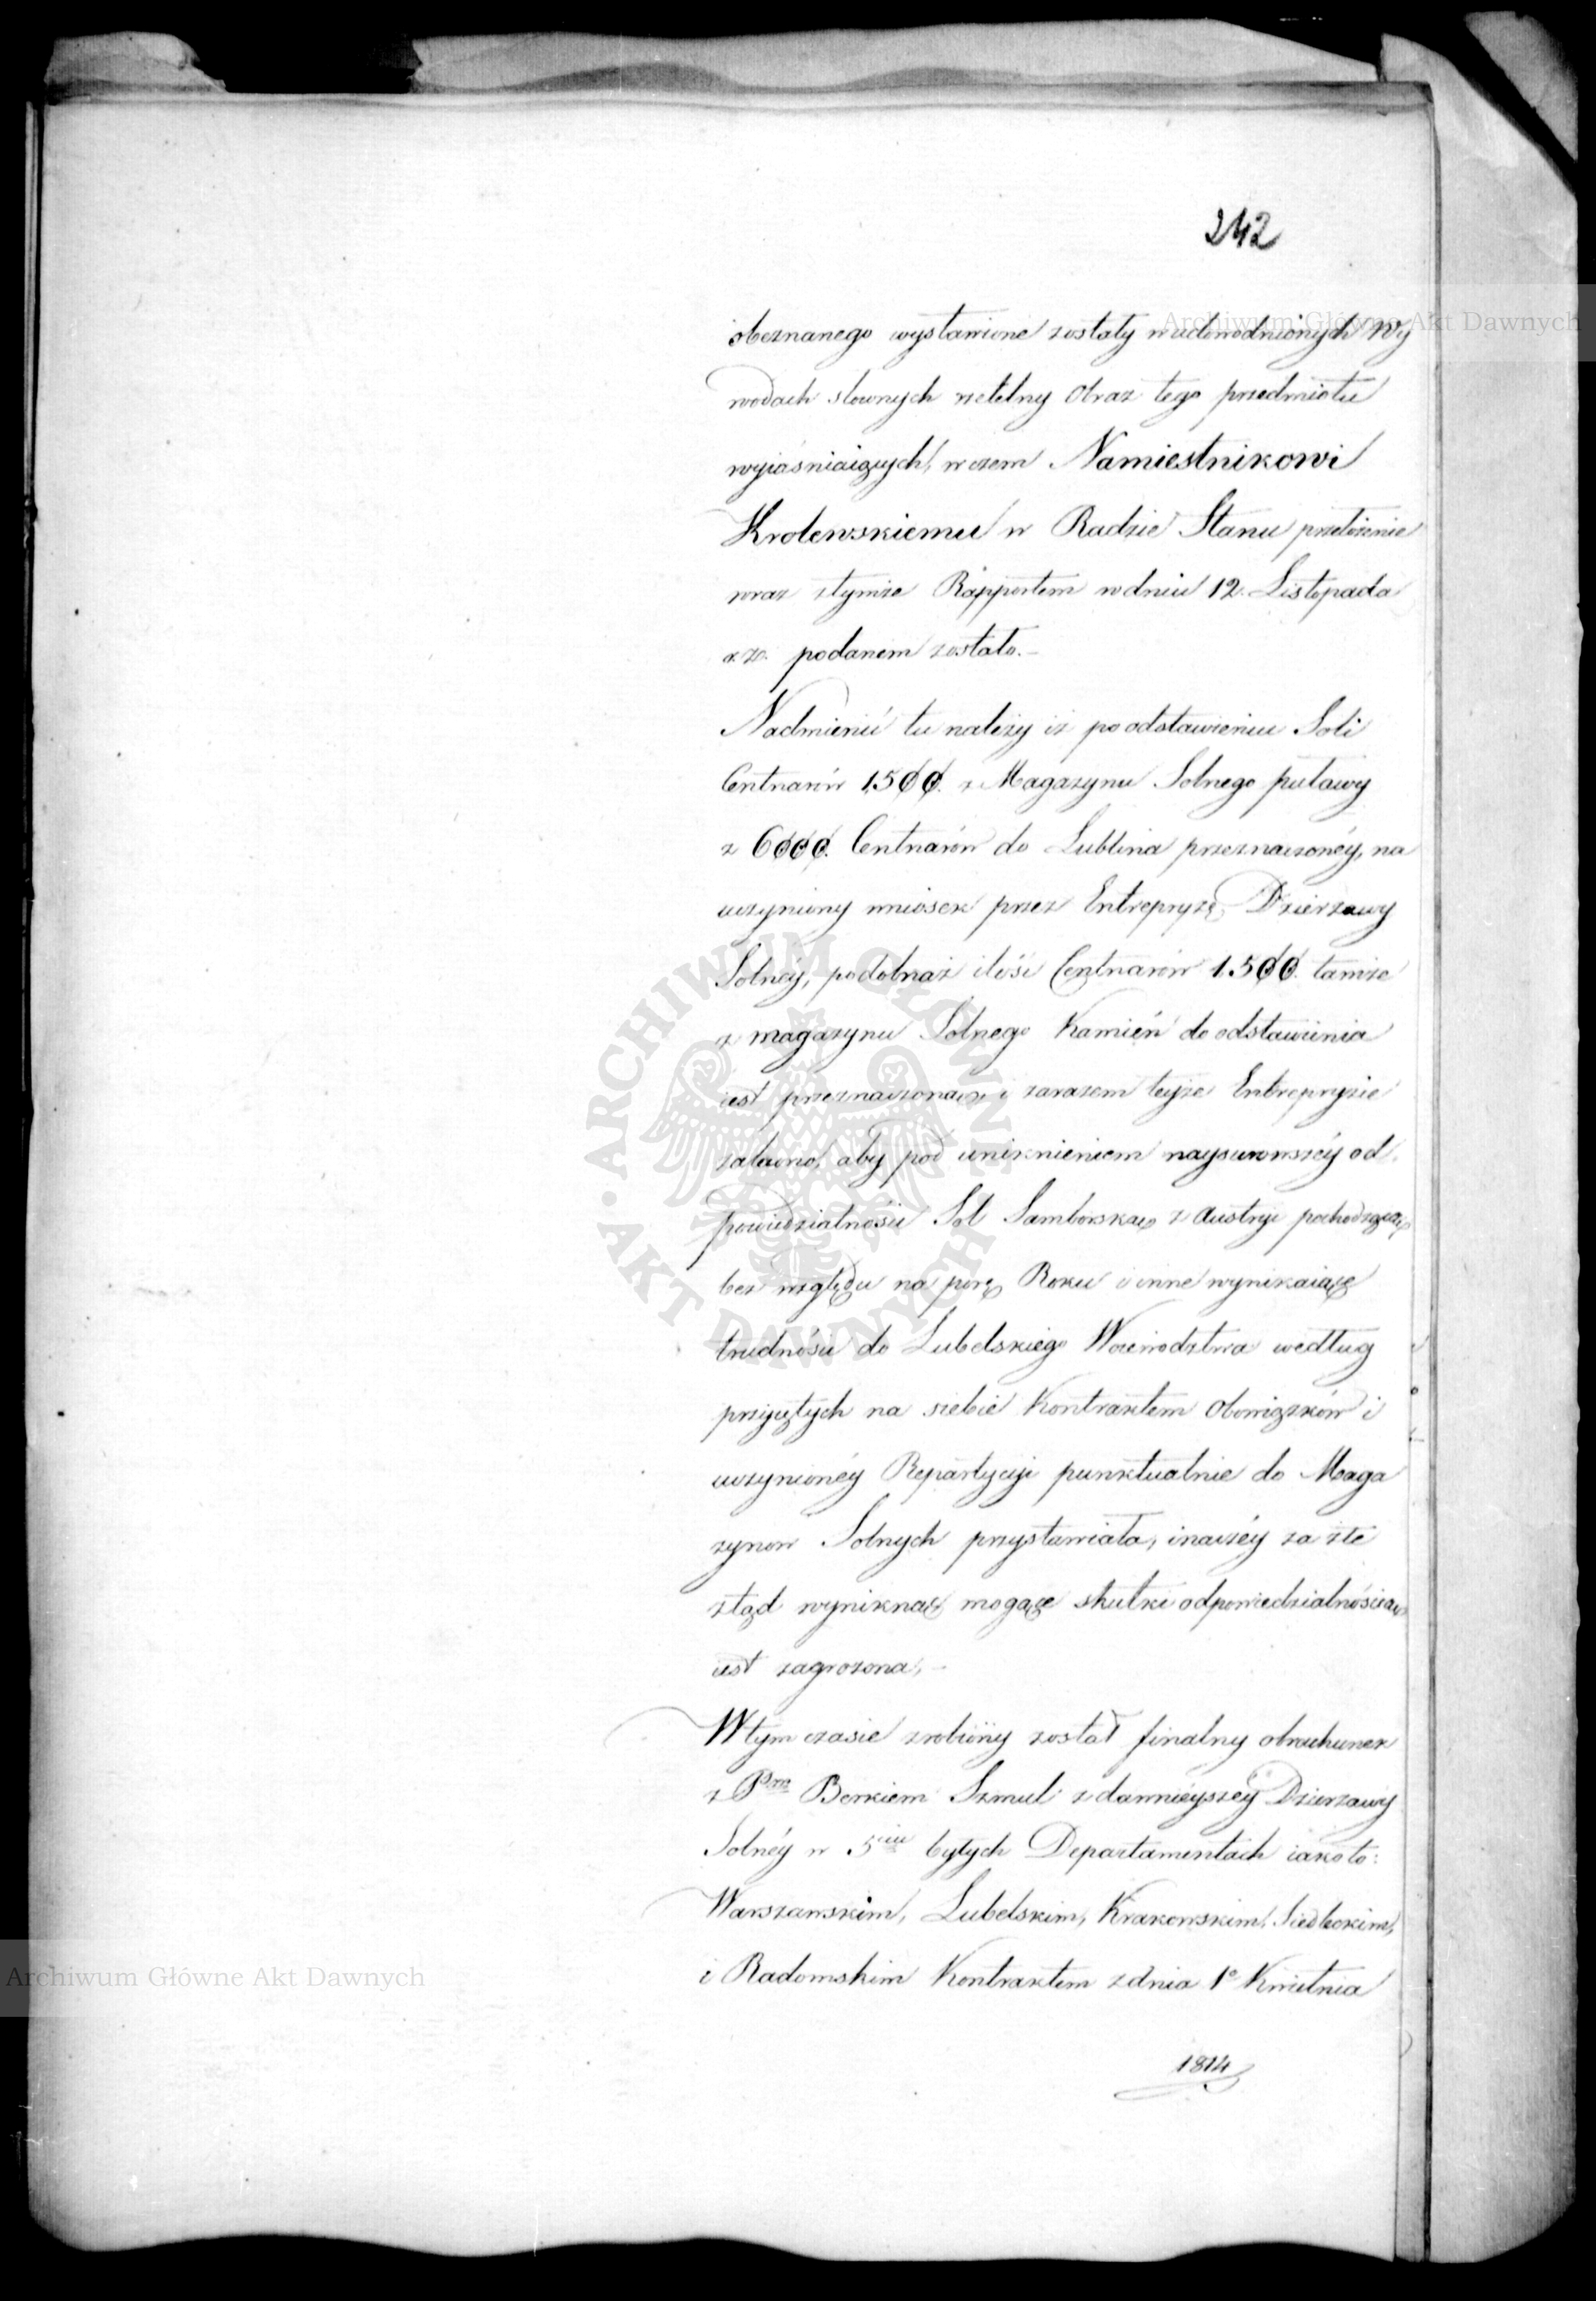 242
Archiwum Główne Akt Dawnych
obeznanego wystawione zostały w udowodnionych wy
wodach słownych rzetelny obraz tego przedmiotu
wyiaśniaiących, w czem Namiestnikowi
Krolewskiemu w Radzie Stanu przełożenie
wraz z tymże Rapportem w dniu 12. Listopada
podanem zostało. –
Nadmienić tu należy iż po odstawieniu Soli
Centnarów 1500. z Magazynu Solnego puławy
z 6000. Centnarów do Lublina przeznaczonéy, na
uczyniony wniosek przez Entrepryzę Dzierzawy
Solnéy, podobnaż ilośc Centnarów 1.500. tamże
z magazynu Solnego Kamień do odstawienia
iest przeznaczona, i zarazem teyże Entrepryzie
zalecono, aby pod uniknieniem naysurowszéy od,
powiedzialności Sol Samborską z Austryi pochodzącą
bez względu na porę Roku i inne wynikaiące
trudności do Lubelskiego Woiewodztwa według
przyiętych na siebie Kontraktem Obowiązków i
uczynionéy Repartycyi punktualnie do Maga
zynow Solnych przystawiała, inaczéy za złe
ztąd wyniknąć mogące skutki odpowiedzialnością
iest zagrozona, –
W tym czasie zrobiony został finalny obrachunek
z Pm Berkiem Szmul z dawnieyszéy Dzierzawy
Solnéy w 5ciu byłych Departamentach iako to:
Warszawskim, Lubelskim, Krakowskim, Siedleckim,
i Radomskim Kontraktem z dnia 1o Kwietnia
1814
ARCHIWUM GŁÓWNE AKT DAWNYCH
Archiwum Główne Akt Dawnych